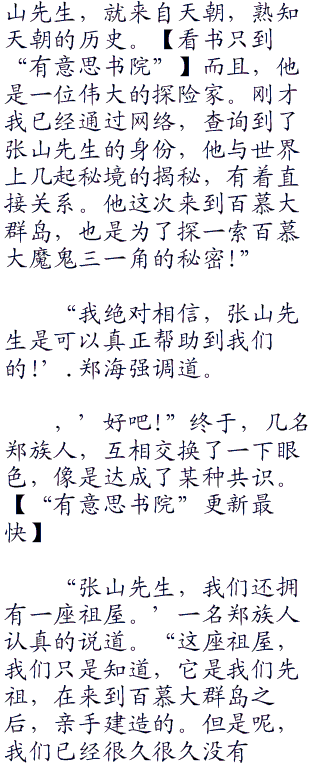 山先生，就来自天朝，熟知
天朝的历史。【看书只到
“有意思书院”】而且，他
是一位伟大的探险家。刚才
我已经通过网络，查询到了
张山先生的身份，他与世界
上几起秘境的揭秘，有着直
接关系。他这次来到百慕大
群岛，也是为了探一索百慕
大魔鬼三一角的秘密!”
“我绝对相信，张山先
生是可以真正帮助到我们
的!’.郑海强调道。
，’好吧!”终于，几名
郑族人，互相交换了一下眼
色，像是达成了某种共识。
【“有意思书院”更新最
快】
“张山先生，我们还拥
有一座祖屋。’一名郑族人
认真的说道。“这座祖屋，
我们只是知道，它是我们先
祖，在来到百慕大群岛之
后，亲手建造的。但是呢，
我们已经很久很久没有